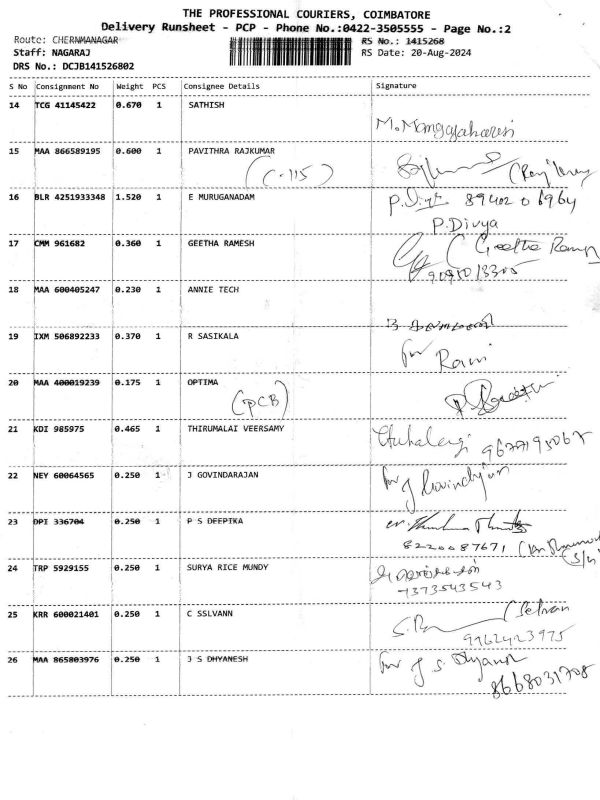 THE PROFESSIONAL COURIERS, COIMBATORE
Delivery Runsheet - PCP - Phone No.:0422-3505555 - Page No.:2
Route: CHERNMANAGAR RS No.: 1415268
Staff: NAGARAJ RS Date: 20-Aug-2024
DRS No.: DCJB141526802
S No Consignment No Weight PCS Consignee Details Signature
14 TCG 41145422 0.670 1 SATHISH
15 MAA 866589195 0.600 1 PAVITHRA RAJKUMAR
(C-115)
16 BLR 4251933348 1.520 1 E MURUGANADAM P. Divya 89402 06964
P. Divya
17 CMM 961682 0.360 1 GEETHA RAMESH (Geetha Ramesh
18 MAA 600405247 0.230 1 ANNIE TECH
19 IXM 506892233 0.370 1 R SASIKALA for Rani
20 MAA 400019239 0.175 1 OPTIMA
(PCB)
21 KDI 985975 0.465 1 THIRUMALAI VEERSAMY
22 NEY 60064565 0.250 1 J GOVINDARAJAN for J Govindrajan
23 DPI 336704 0.250 1 P S DEEPIKA
8220087671
24 TRP 5929155 0.250 1 SURYA RICE MUNDY
7373543543
25 KRR 600021401 0.250 1 C SSLVANN (Selvan
9962423975
26 MAA 865803976 0.250 1 J S DHYANESH for J. S. Dhyanesh
8668031708